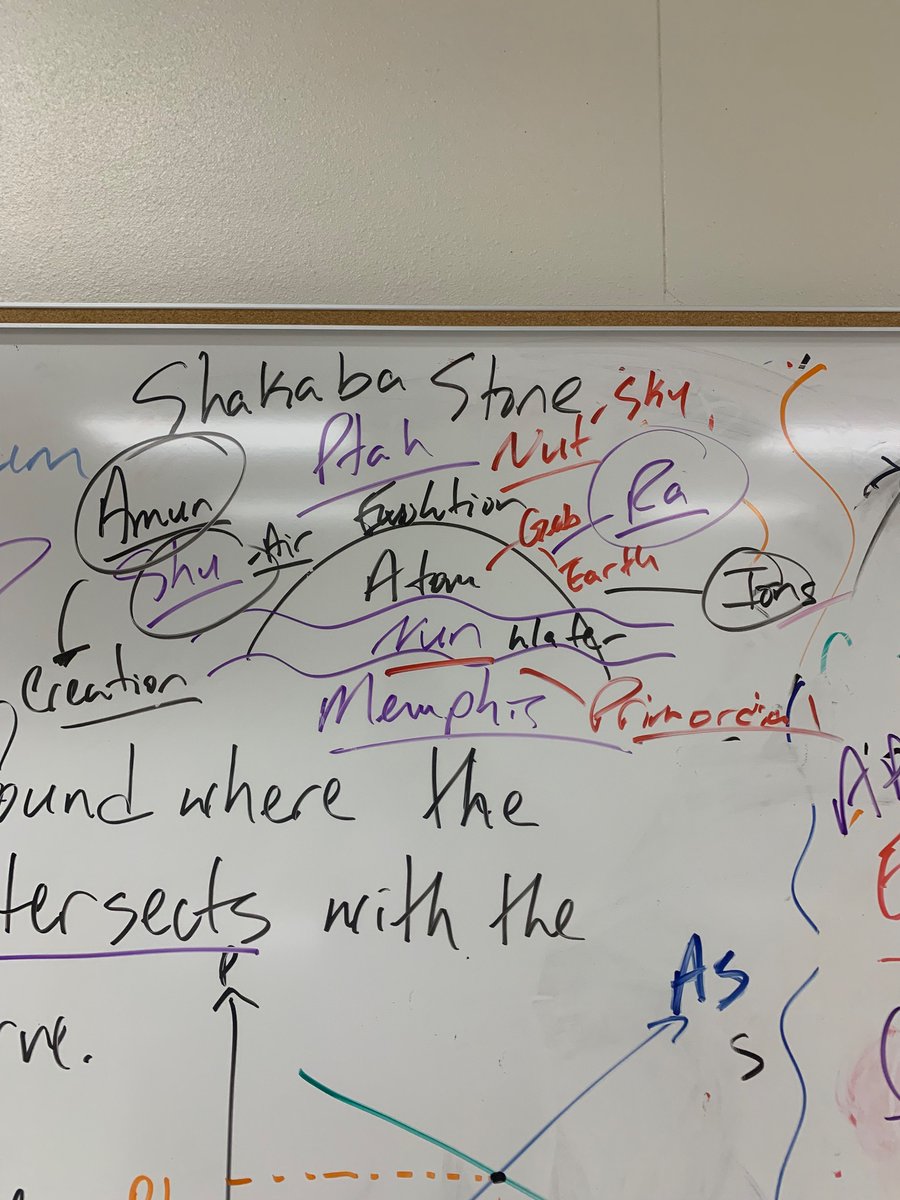 Shakaba Stone
Ptah Nut, Sky
Amun Evolution Ra
Shu - Air Geb
Atom Earth Ions
Nun Water
Creation
Memphis Primordial
ound where the
tersects with the
P As
rve. S
P1